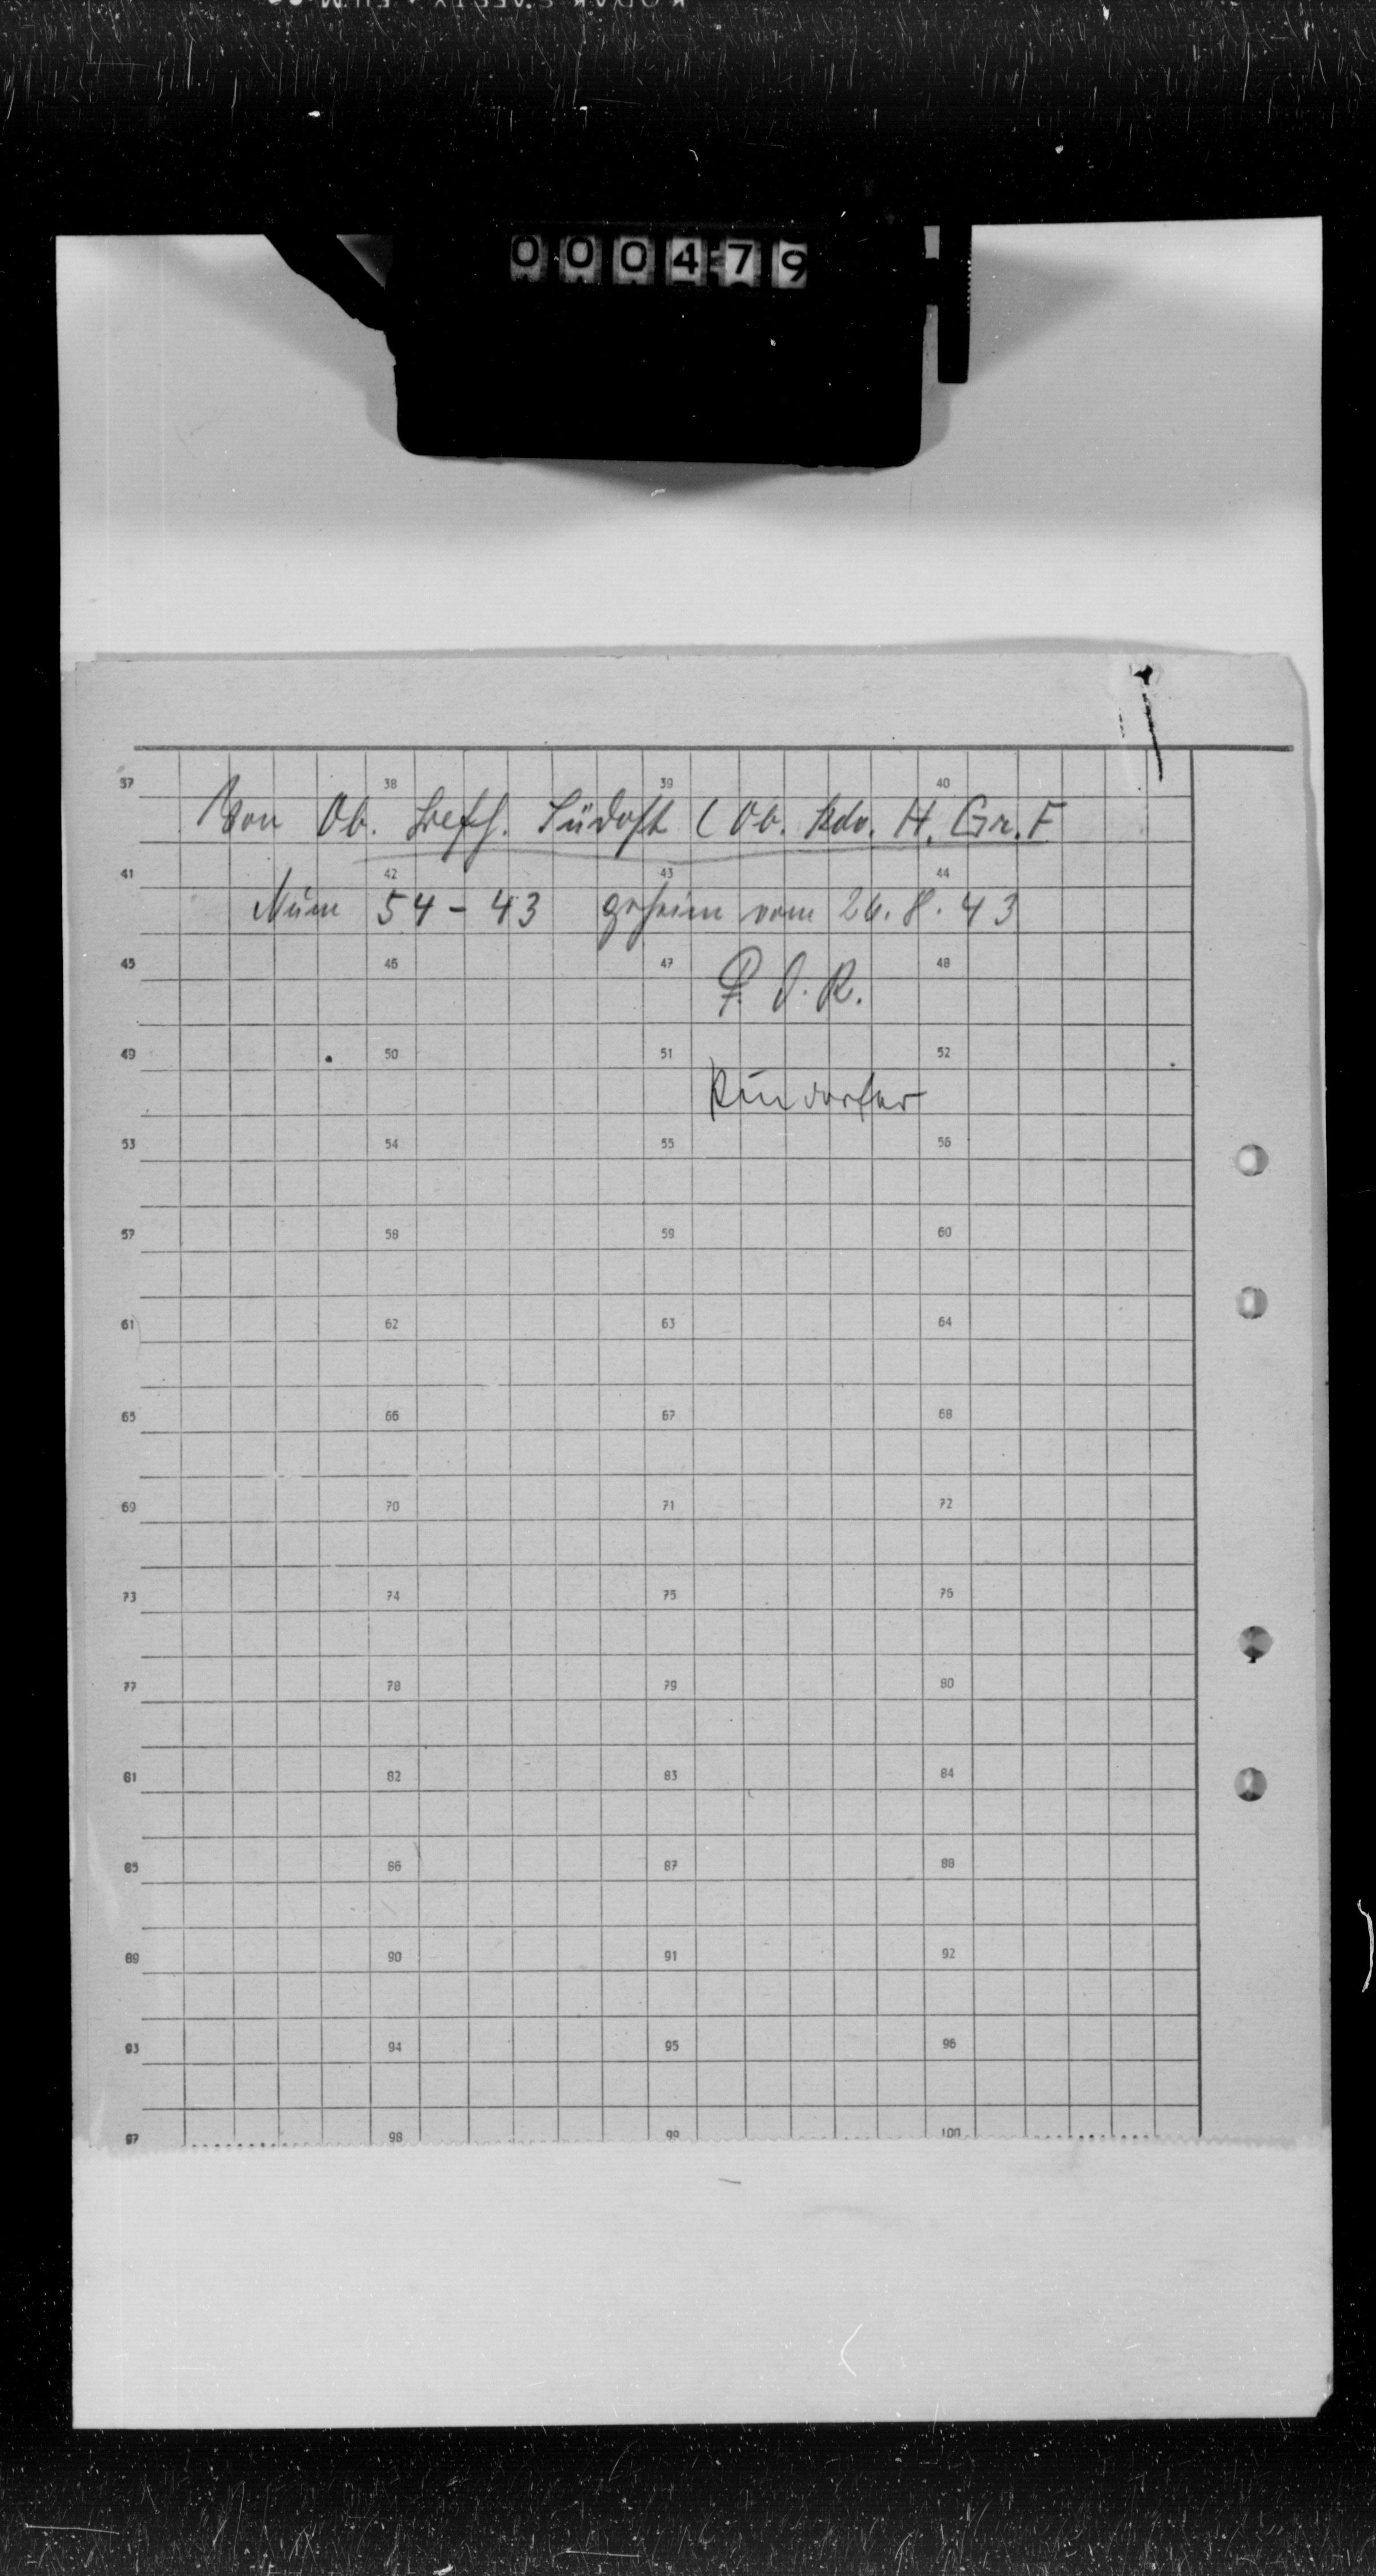 000479
37 38 39 40
Von Ob. Befh. Südost (Ob. Kdo. H. Gr. F
41 42 43 44
Num 54-43 geheim vom 26.8.43
45 46 47 48
F. d. R.
49 50 51 52
53 54 55 56
57 58 59 60
61 62 63 64
65 66 67 68
69 70 71 72
73 74 75 76
77 78 79 80
81 82 83 84
85 86 87 88
89 90 91 92
93 94 95 96
97 98 99 100